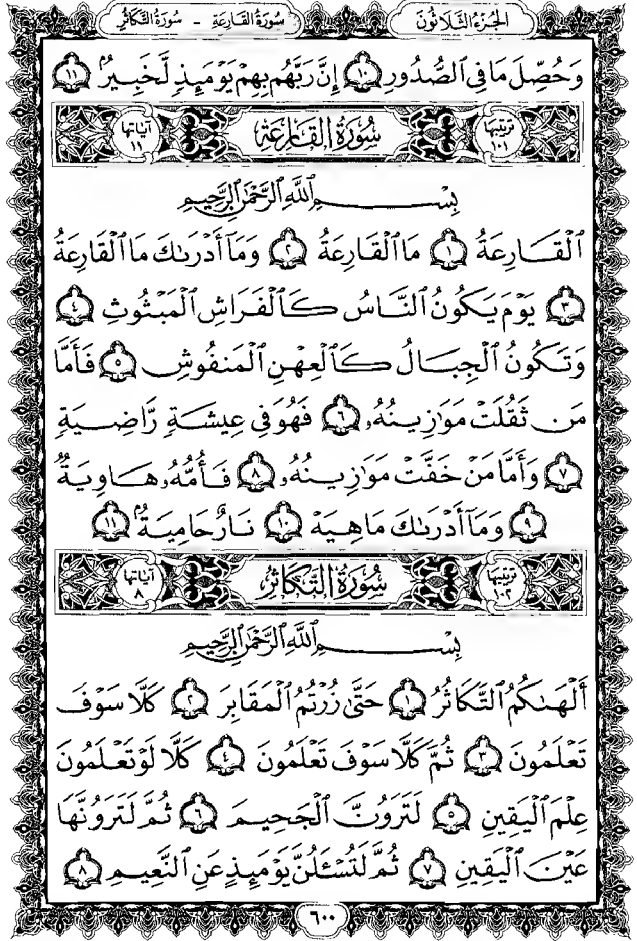 الجُزءُ الثَّلَاثُونَ
سُورَةُ القَارِعَةِ - سُورَةُ التَّكَاثُرِ
وَحُصِّلَ مَا فِي ٱلصُّدُورِ ١٠ إِنَّ رَبَّهُم بِهِمْ يَوْمَئِذٍ لَّخَبِيرٌۢ ١١
ترتيبها ١٠١ سُورَةُ القَارِعَةِ آياتها ١١
بِسْمِ ٱللَّهِ ٱلرَّحْمَٰنِ ٱلرَّحِيمِ
ٱلْقَارِعَةُ ١ مَا ٱلْقَارِعَةُ ٢ وَمَآ أَدْرَىٰكَ مَا ٱلْقَارِعَةُ
٣ يَوْمَ يَكُونُ ٱلنَّاسُ كَٱلْفَرَاشِ ٱلْمَبْثُوثِ ٤
وَتَكُونُ ٱلْجِبَالُ كَٱلْعِهْنِ ٱلْمَنفُوشِ ٥ فَأَمَّا
مَن ثَقُلَتْ مَوَٰزِينُهُۥ ٦ فَهُوَ فِي عِيشَةٍ رَّاضِيَةٍ
٧ وَأَمَّا مَنْ خَفَّتْ مَوَٰزِينُهُۥ ٨ فَأُمُّهُۥ هَاوِيَةٌ
٩ وَمَآ أَدْرَىٰكَ مَا هِيَهْ ١٠ نَارٌ حَامِيَةٌۢ ١١
ترتيبها ١٠٢ سُورَةُ التَّكَاثُرِ آياتها ٨
بِسْمِ ٱللَّهِ ٱلرَّحْمَٰنِ ٱلرَّحِيمِ
أَلْهَىٰكُمُ ٱلتَّكَاثُرُ ١ حَتَّىٰ زُرْتُمُ ٱلْمَقَابِرَ ٢ كَلَّا سَوْفَ
تَعْلَمُونَ ٣ ثُمَّ كَلَّا سَوْفَ تَعْلَمُونَ ٤ كَلَّا لَوْ تَعْلَمُونَ
عِلْمَ ٱلْيَقِينِ ٥ لَتَرَوُنَّ ٱلْجَحِيمَ ٦ ثُمَّ لَتَرَوُنَّهَا
عَيْنَ ٱلْيَقِينِ ٧ ثُمَّ لَتُسْـَٔلُنَّ يَوْمَئِذٍ عَنِ ٱلنَّعِيمِ ٨
٦٠٠